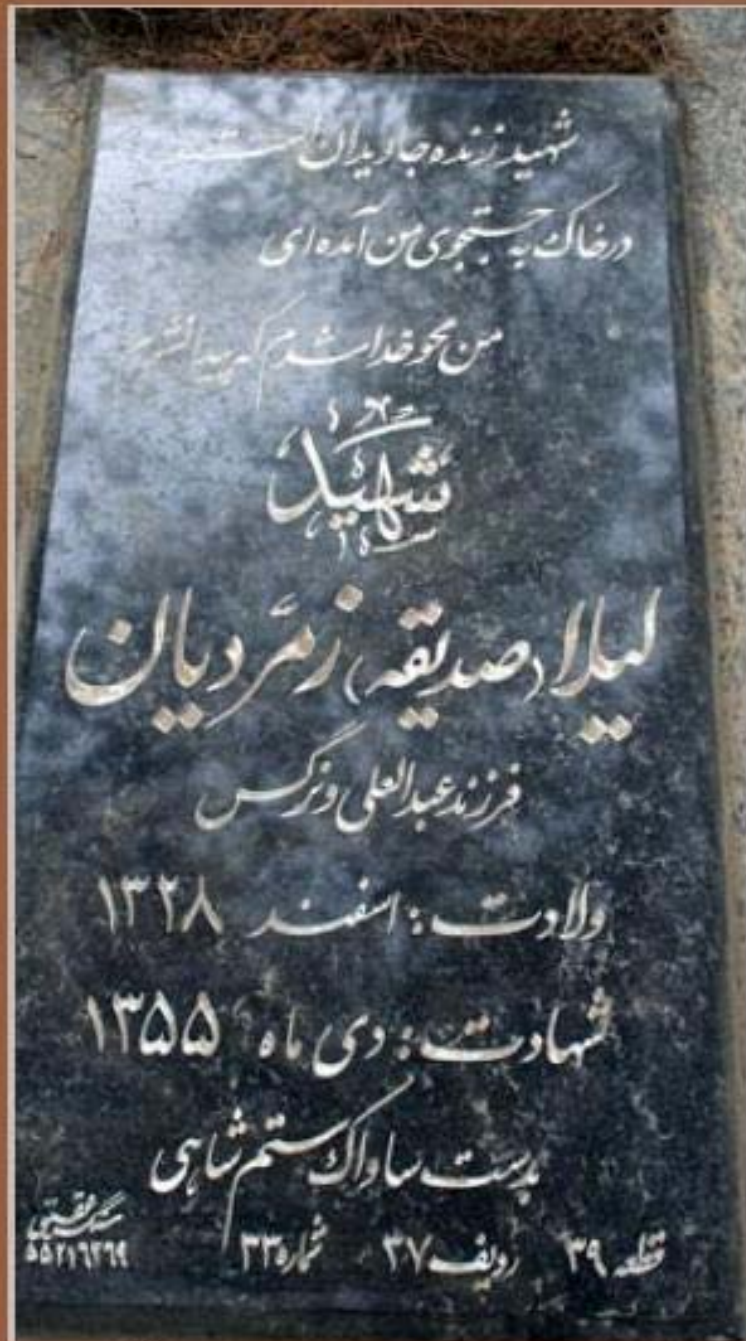 شهید زنده جاویدان است
در خاک به جستجوی من آمده ای
من محو خدا شدم که پیدا نشوم
شهید
لیلا (صدیقه) زمردیان
فرزند عبدالعلی و نرگس
ولادت : اسفند ۱۳۲۸
شهادت : دی ماه ۱۳۵۵
بدست ساواک ستم شاهی
قطعه ۳۹ ردیف ۳۷ شماره ۳۳
سنگ
۵۵۲۱۶۲۶۹